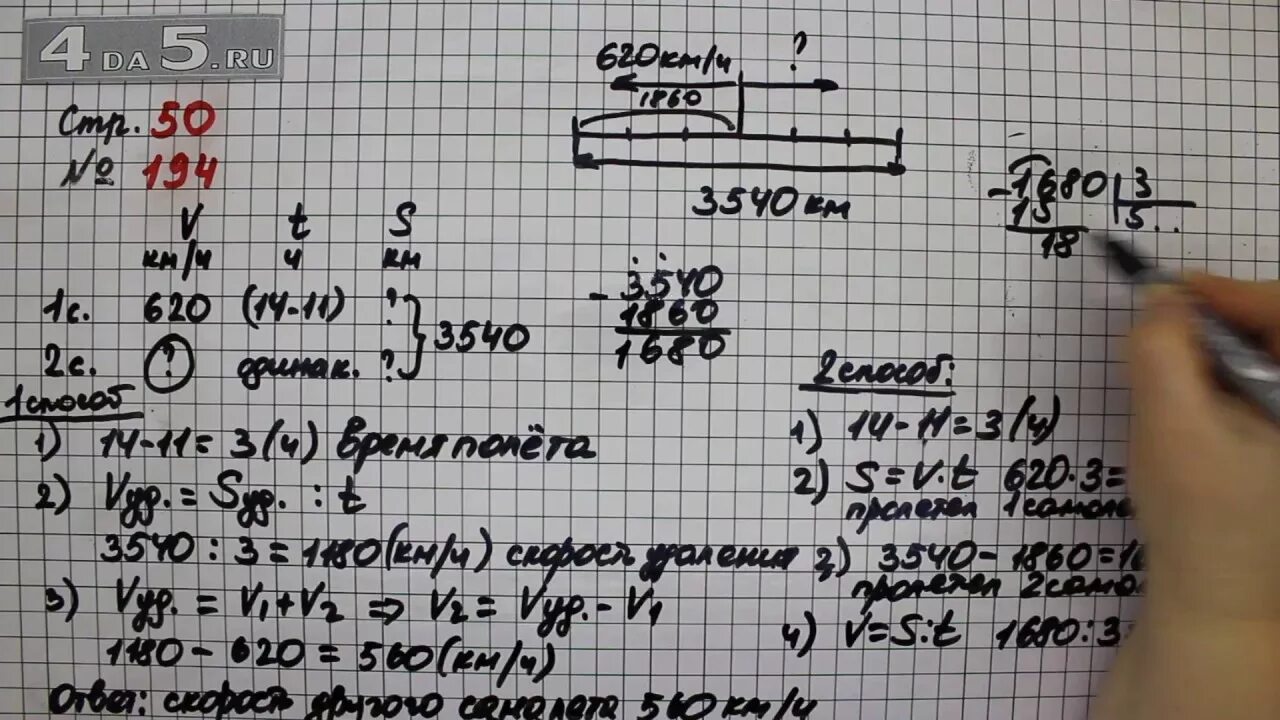 4 DA 5.RU
Стр. 50
№ 194
620 км/ч ?
1860
3540 км
V t S
км/ч ч км
1с. 620 (14-11) ? } 3540
2с. ? одинак. ?
- 3540
1860
1680
- 1680 | 3
15 5..
18
1 способ
1) 14-11= 3 (ч) Время полёта
2) Vуд. = Sуд. : t
3540 : 3 = 1180 (км/ч) скорость удаления
3) Vуд. = V1+V2 ⇒ V2 = Vуд. - V1
1180 - 620 = 560 (км/ч)
Ответ: скорость другого самолёта 560 км/ч
2 способ:
1) 14-11=3 (ч)
2) S=V·t 620·3=
пролетел 1 самолё
3) 3540-1860=16
пролетел 2 самол
4) V=S:t 1680:3=